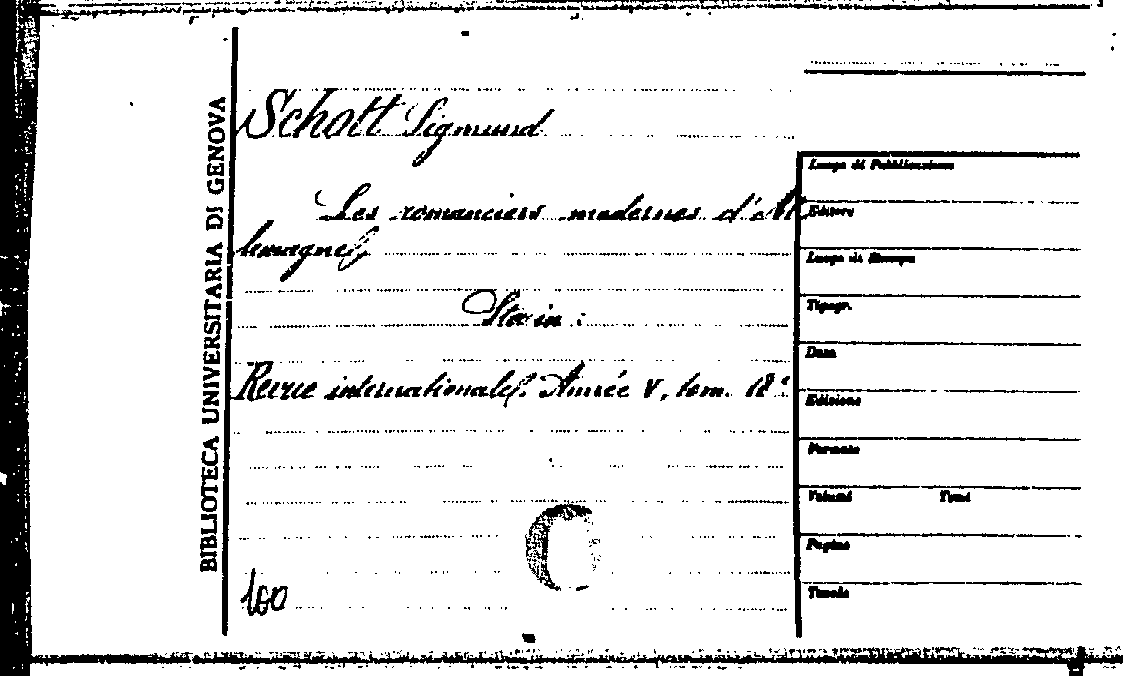 BIBLIOTECA UNIVERSITARIA DI GENOVA
Schott Sigmund
Les romanciers modernes d'Al
lemagne
Sta in:
Revue internationale. Année V, tom. 18º
100
Luogo di Pubblicazione
Editore
Luogo di Stampa
Tipogr.
Data
Edizione
Formato
Volumi Tomi
Pagine
Tavole